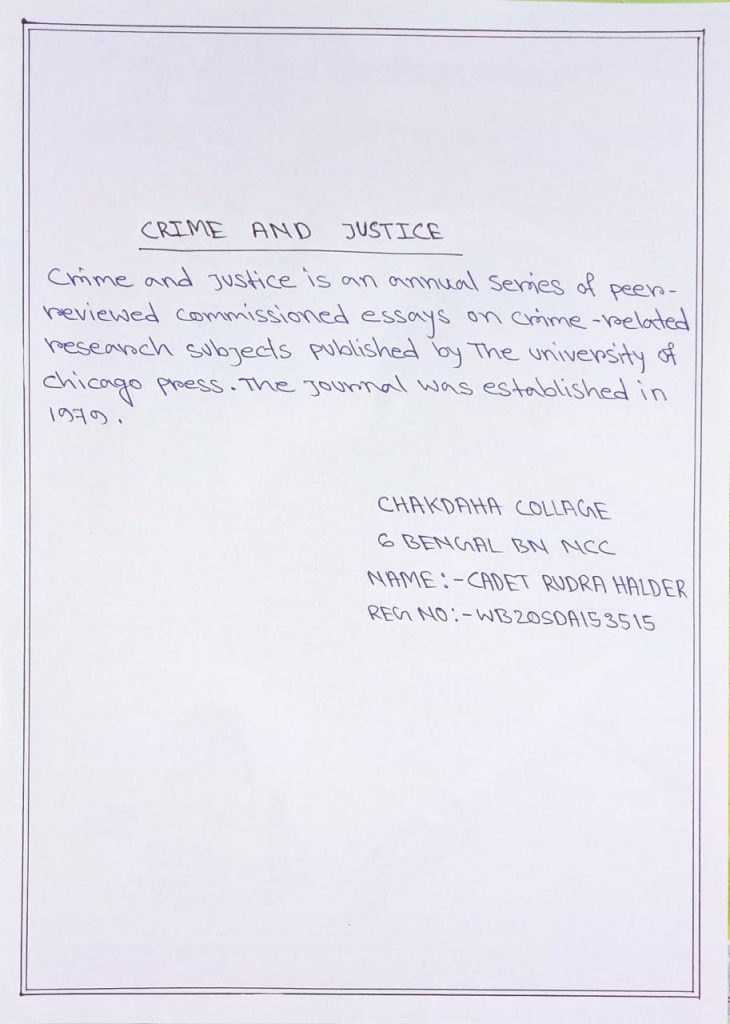 CRIME AND JUSTICE
Crime and Justice is an annual series of peer-
reviewed commissioned essays on crime-related
research subjects published by The university of
chicago press. The Journal was established in
1979.
CHAKDAHA COLLAGE
6 BENGAL BN NCC
NAME:-CADET RUDRA HALDER
REG NO:-WB20SDA153515